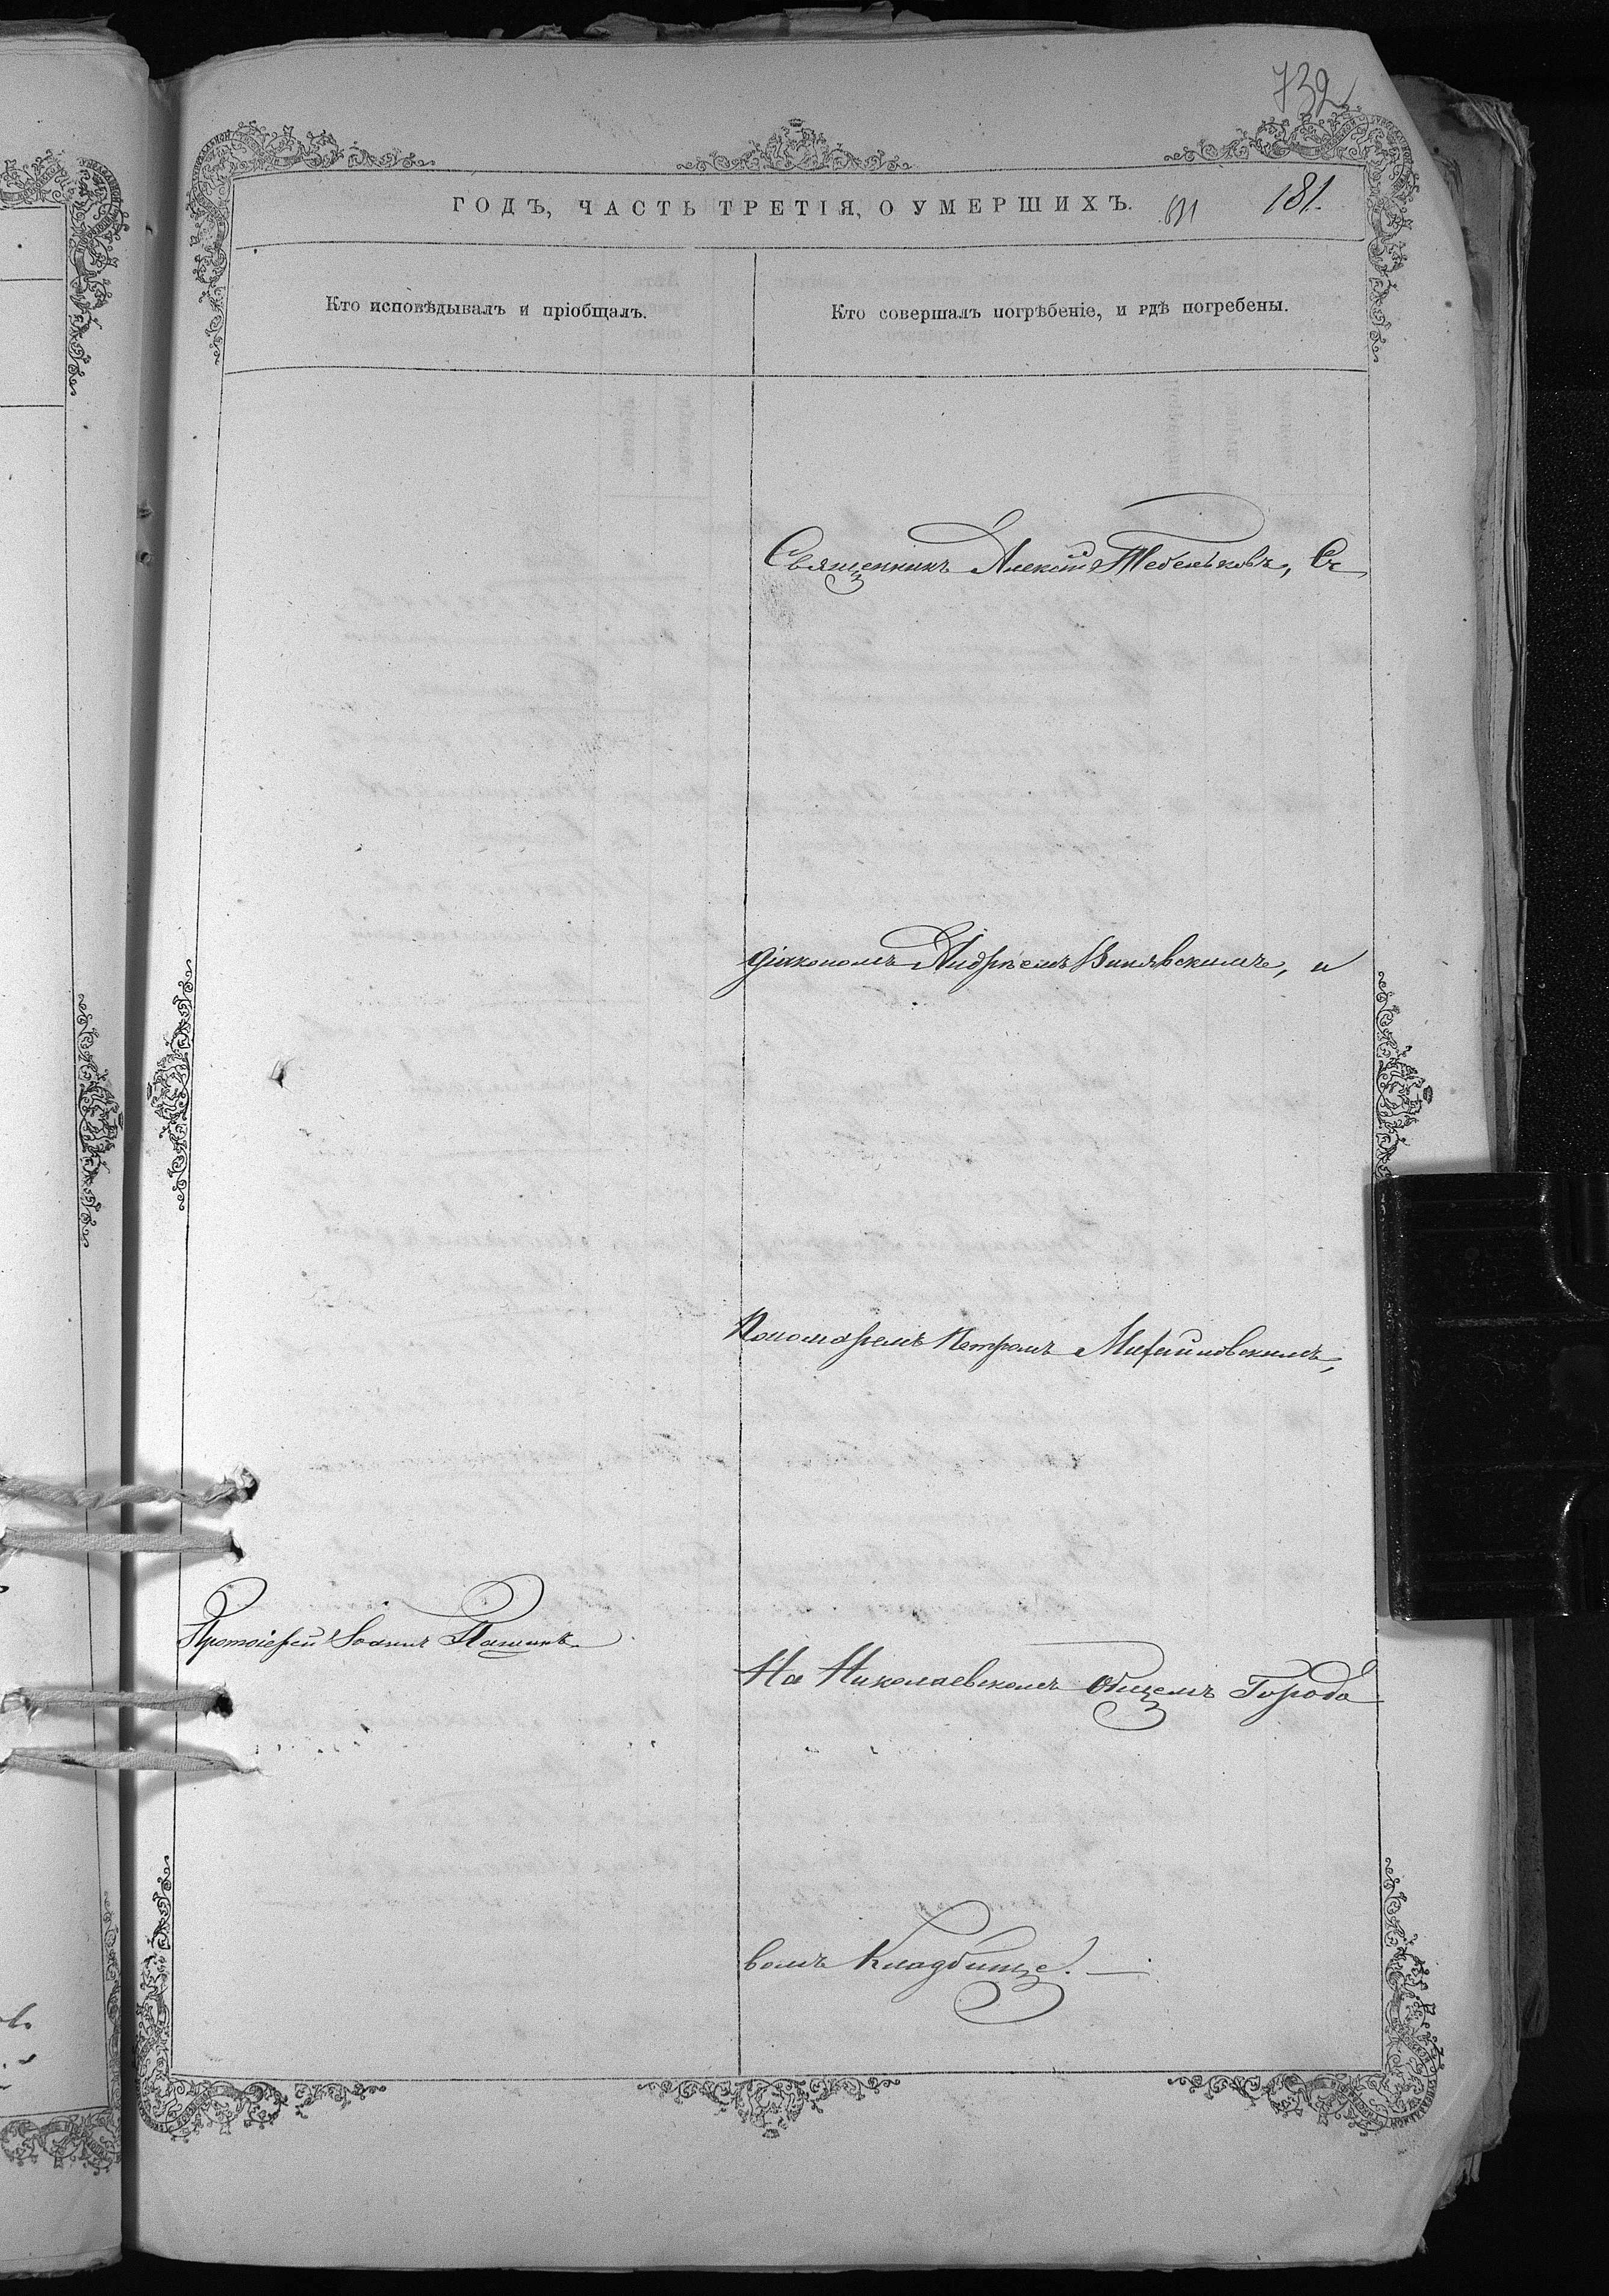 732
ГОДЪ, ЧАСТЬ ТРЕТІЯ, О УМЕРШИХЪ. 181.
Кто исповѣдывалъ и пріобщалъ.
Кто совершалъ погрѣбеніе, и гдѣ погребены.
Священникъ Алексій Тебеньковъ, Съ
діакономъ Андреемъ
, и
Пономаремъ Петромъ
Протоіерей Іоаннъ Пашинъ
На Николаевскомъ Общемъ Городо
вомъ Кладбище. —